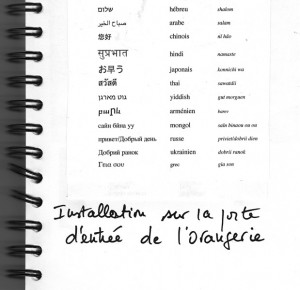 שלום hébreu shalom
صباح الخير arabe salam
您好 chinois ni hão
सुप्रभात hindi namaste
お早う japonais konnichi wa
สวัสดี thai sawatdii
גוט מארגן yiddish gut morguen
բարև arménien barev
сайн байна уу mongol sain bainau uu
привет/Добрый день russe priviet/dobrii dien
Добрий ранок ukrainien dobrii ranok
Γεια σου grec gia sou
Installation sur la porte
d'entrée de l'Orangerie